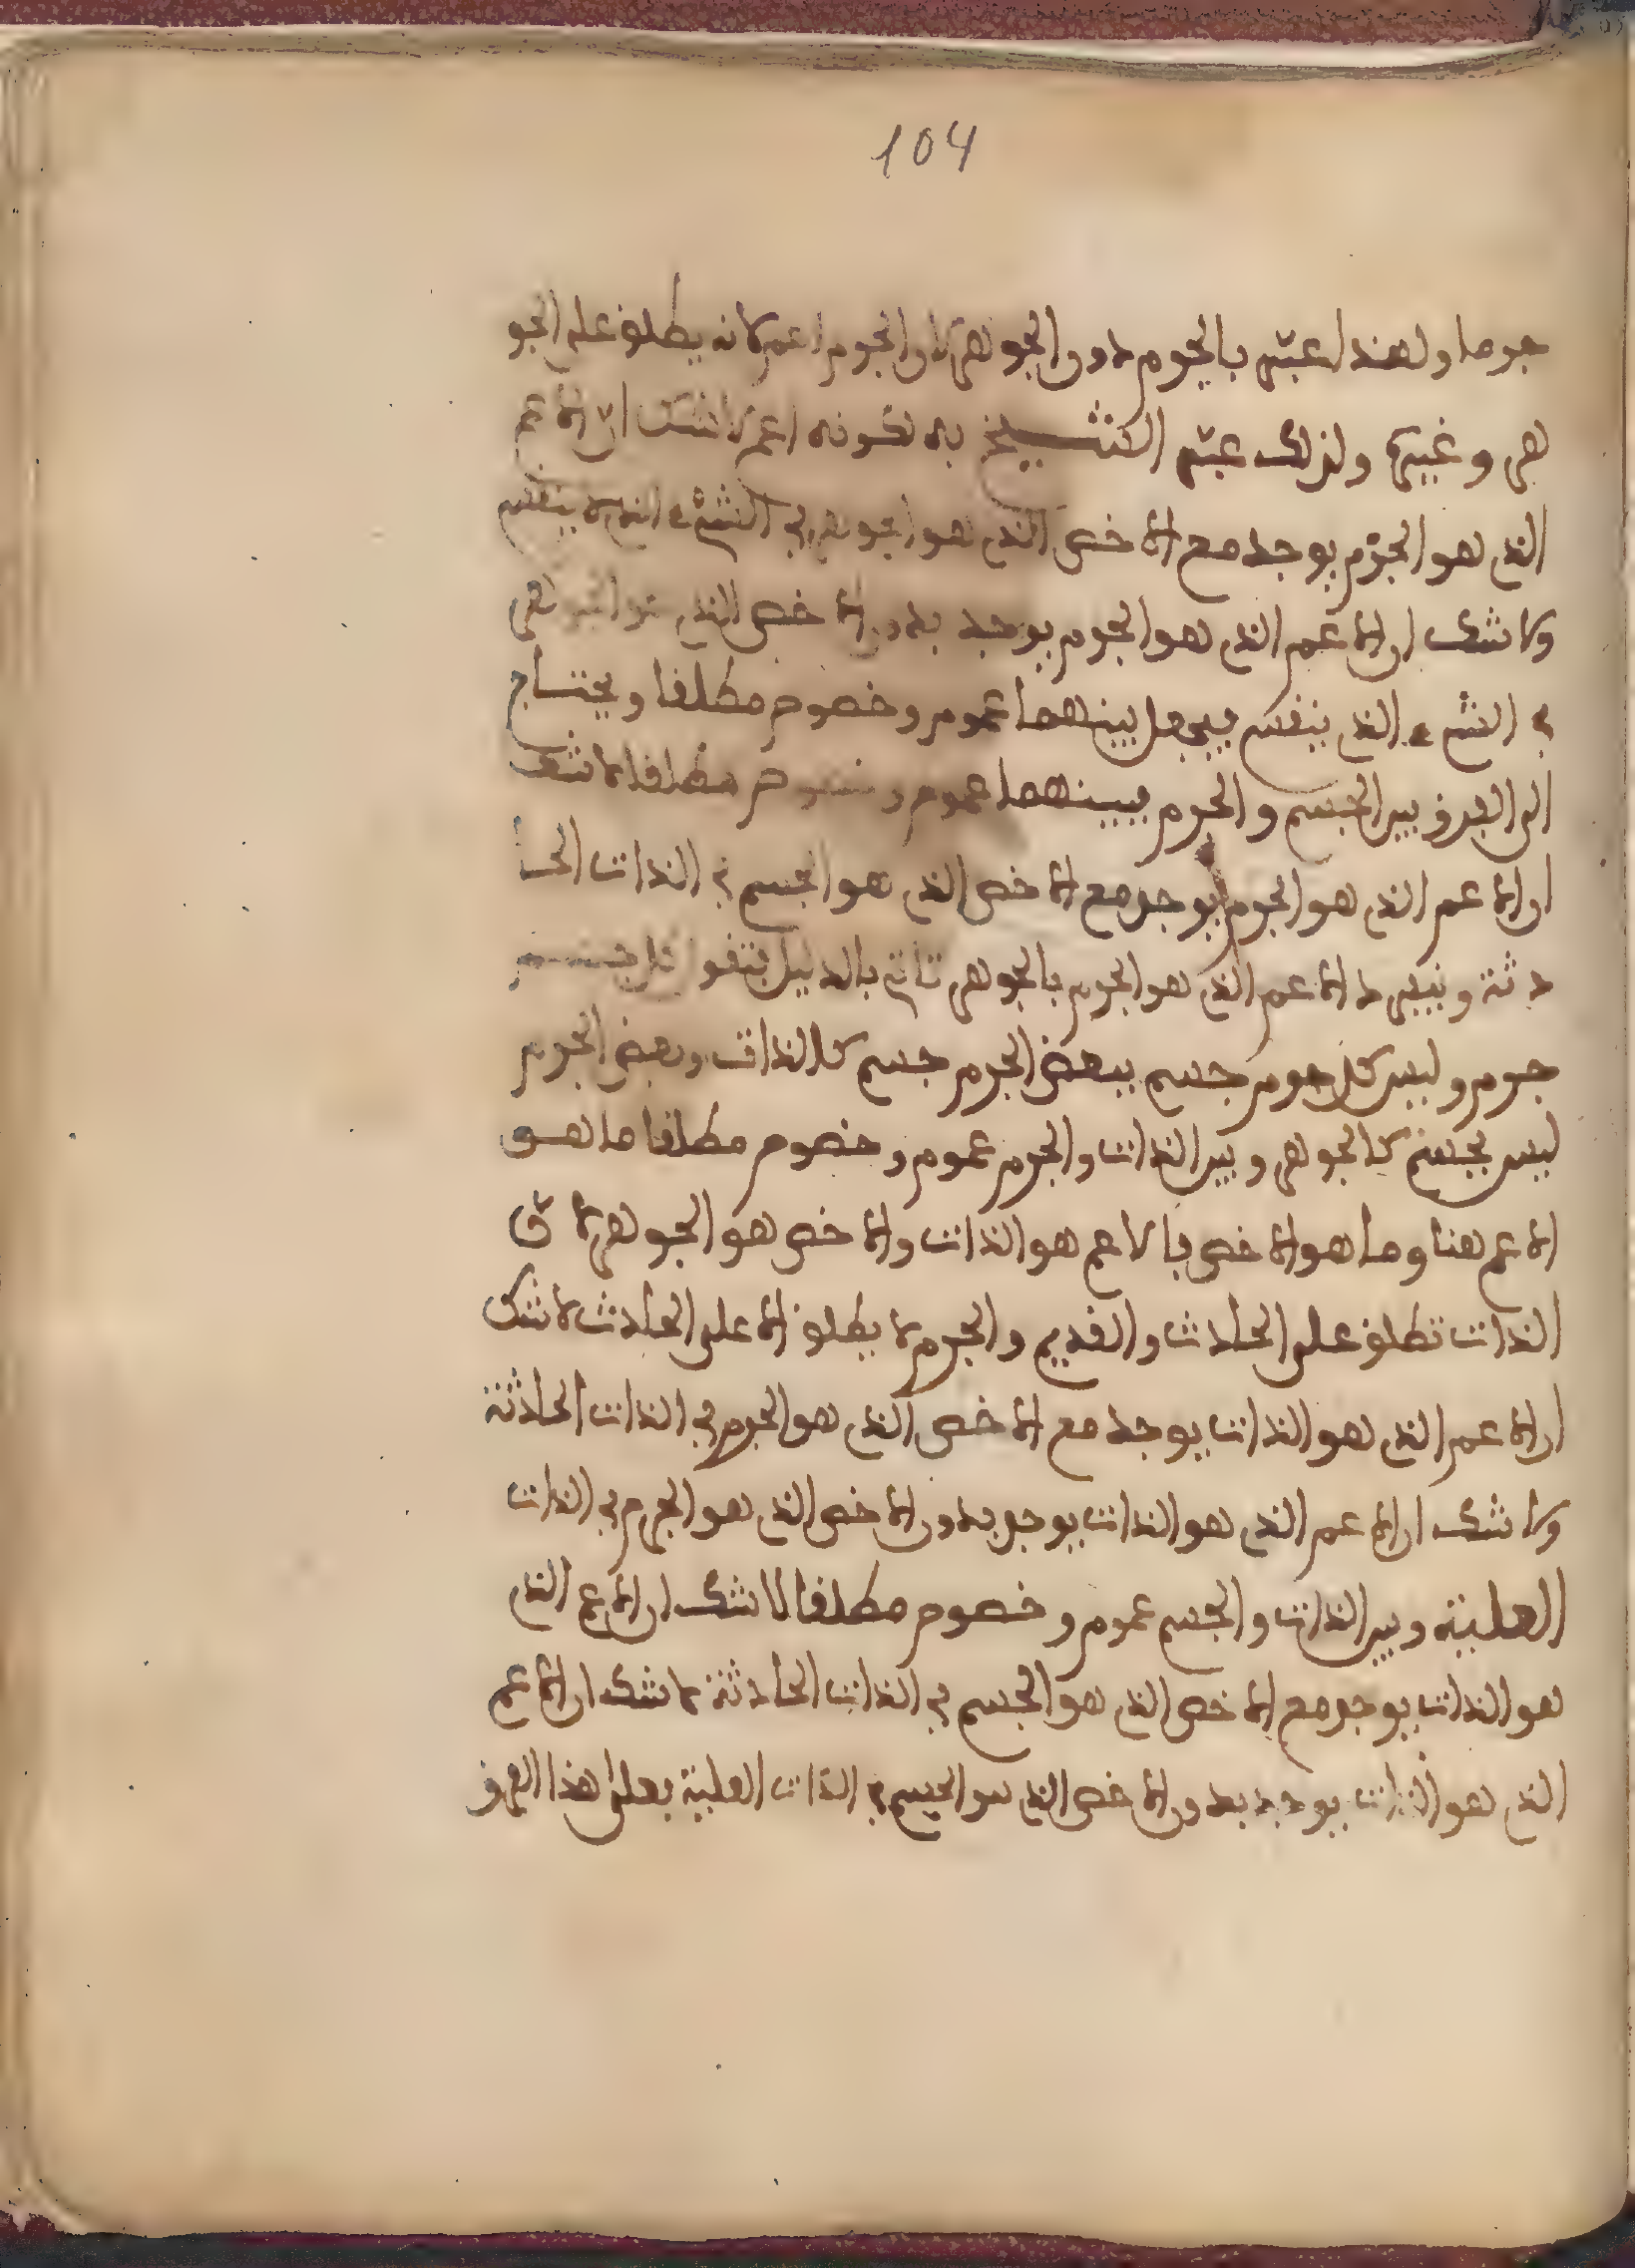 104
جرما ولهذا عبّر بالجرم دون الجوهر لان الجرم اعم لانه يطلق على الجو
هر وغيره ولذلك عبّر الشيخ به لكونه اعم لا شك ان الاعم
الذي هو الجرم يوجد مع الاخص الذي هو الجوهر في الشيء الذي لا ينقسم
ولا شك ان الاعم الذي هو الجرم يوجد بدون الاخص الذي هو الجوهر
في الشيء الذي ينقسم فيجعل بينهما عموم وخصوص مطلقا ويحتاج
الى الفرق بين الجسم والجرم فبينهما عموم وخصوص مطلقا لا شك
ان الاعم الذي هو الجرم يوجد مع الاخص الذي هو الجسم في الذات الحا
دثة وينفرد الاعم الذي هو الجرم بالجوهر تاتي بالدليل فتقول كل جسم
جرم وليس كل جرم جسم فبعض الجرم جسم كالذات وبعض الجرم
ليس بجسم كالجوهر وبين الذات والجرم عموم وخصوص مطلقا ما هو
الاعم هنا وما هو الاخص فالاعم هو الذات والاخص هو الجوهر لانّ
الذات تطلق على الحادث والقديم والجرم لا يطلق الا على الحادث لا شك
ان الاعم الذي هو الذات يوجد مع الاخص الذي هو الجرم في الذات الحادثة
ولا شك ان الاعم الذي هو الذات يوجد بدون الاخص الذي هو الجرم في الذات
العلية وبين الذات والجسم عموم وخصوص مطلقا لا شك ان الاعم الذي
هو الذات يوجد مع الاخص الذي هو الجسم في الذات الحادثة لا شك ان الاعم
الذي هو الذات يوجد بدون الاخص الذي هو الجسم في الذات العلية فعلى هذا الفرق